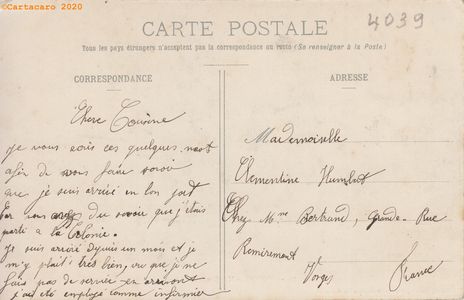 ©Cartacaro 2020
4039
CARTE POSTALE
Tous les pays étrangers n'acceptent pas la correspondance au recto (Se renseigner à la Poste)
CORRESPONDANCE
ADRESSE
Chere Cousine
je vous ecris ces quelques mots
afin de vous faire savoir
que je suis arrivé en bon
du savoir que j'étais
parti a la Colonie.
Je suis arrivé depuis un mois et je
m'y plait très bien, vu que je ne
fais pas de service en arrivant
j'ai été employé comme infirmier
Mademoiselle
Clementine Humbert
Chez Mme Bertrand, Grande-Rue
Remiremont
Vosges
France